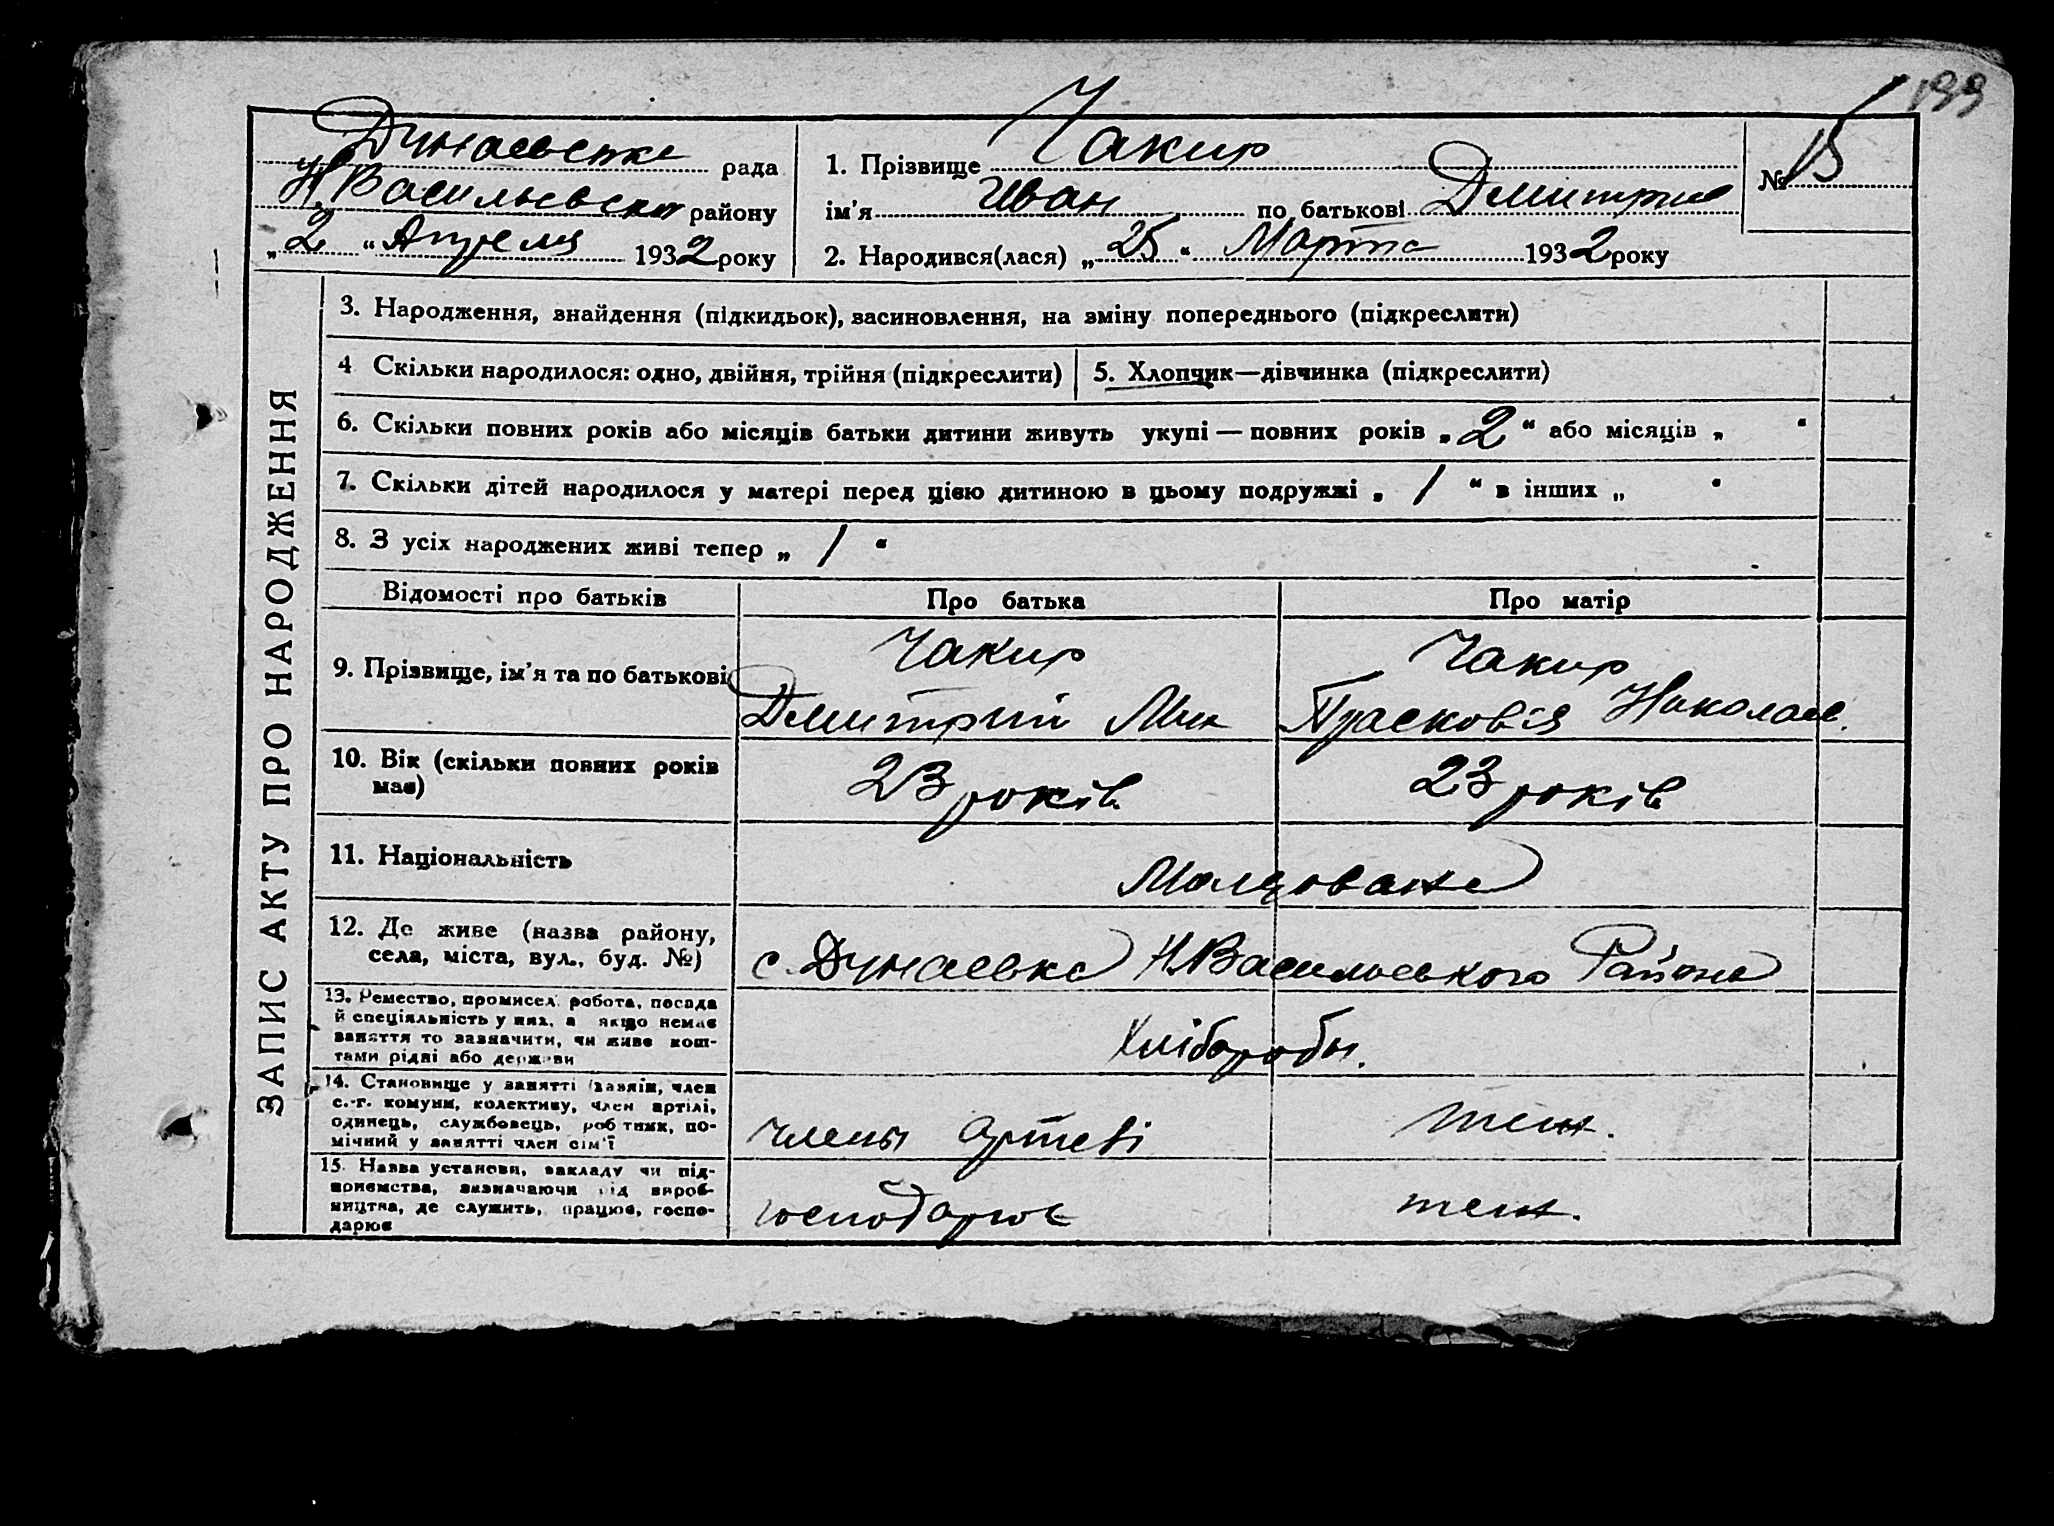 199
Дунаевска рада
Н.Васильевско району
„2“ Апреля 1932 року
1. Прізвище Чакир
ім'я Иван по батькові Дмитрие
2. Народився(лася) „25“ Марта 1932 року
№ 15
ЗАПИС АКТУ ПРО НАРОДЖЕННЯ
3. Народження, знайдення (підкидьок), васиновлення, на зміну попереднього (підкреслити)
4 Скільки народилося: одно, двійня, трійня (підкреслити)
5. Хлопчик—дівчинка (підкреслити)
6. Скільки повних років або місяців батьки дитини живуть укупі — повних років „2“ або місяців „ “
7. Скільки дітей народилося у матері перед цією дитиною в цьому подружжі „1“ в інших „ “
8. З усіх народжених живі тепер „1“
Відомості про батьків Про батька Про матір
9. Прізвище, ім'я та по батькові
Чакир
Дмитрий Мик
Чакир
Прасковія Николае.
10. Вік (скільки повних років
має)
23 років
23 років
11. Національність
Молдоване
12. Де живе (назва району,
села, міста, вул., буд. №)
с. Дунаевка Н.Васильевського Району
13. Ремество, промисел, робота, посада
й спеціяльність у них, а якщо немає
заняття то зазначити, чи живе кош-
тами рідні або держави
Хлібороби.
14. Становище у занятті (хазяїн, член
с.-г. комуни, колективу, член артілі,
одинець, службовець, робітник, по-
мічний у занятті член сім'ї
члены артеві
теж.
15. Назва установи, закладу чи під-
приємства, зазначаючи рід вироб-
ництва, де служить, працює, госпо-
дарює
господарює
теж.